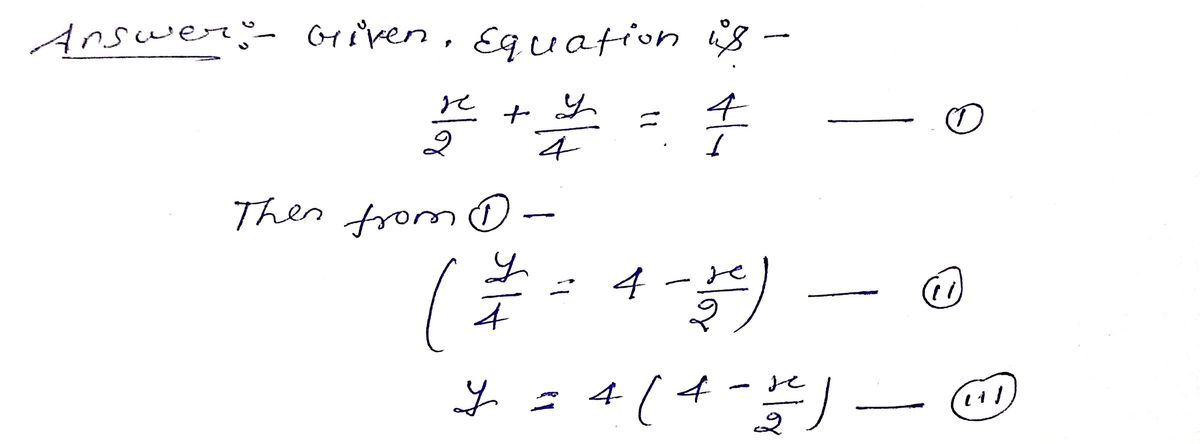 Answer:- Given, Equation is -
x/2 + y/4 = 4/1 — (i)
Then from (i) -
(y/4 = 4 - x/2) — (ii)
y = 4(4 - x/2) — (iii)